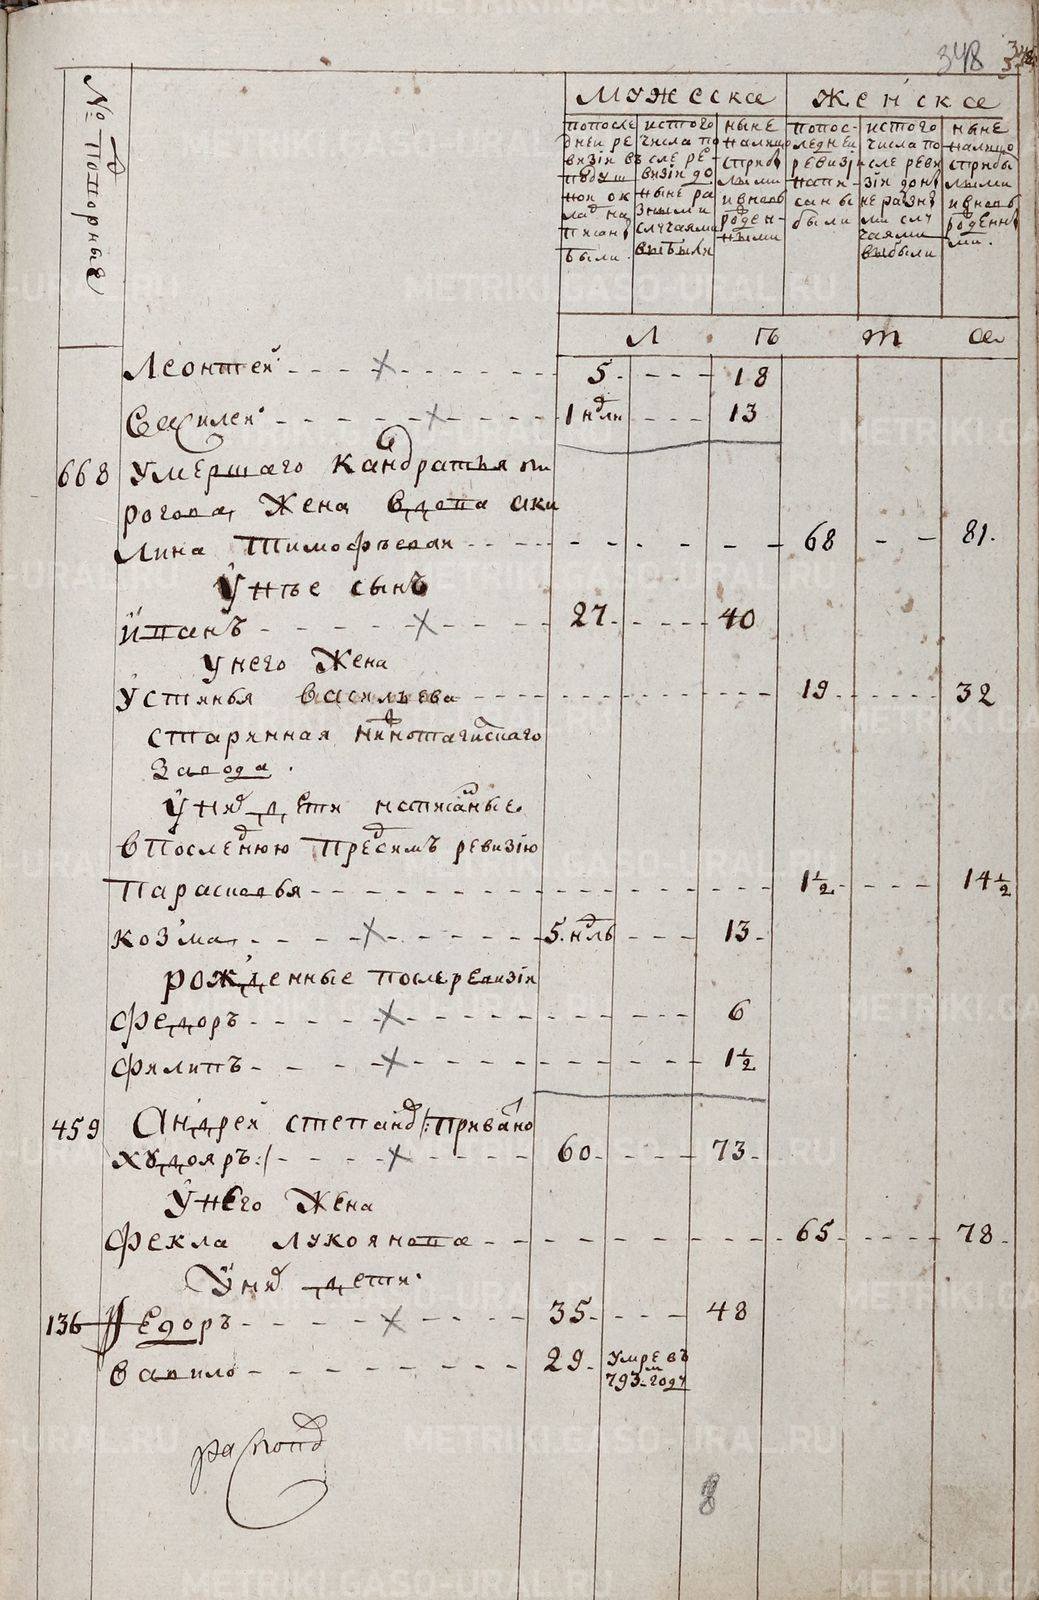 348
№ Подворные
Мужеска
Женска
по после
дней ре
визїи въ
подуш
ной ок
лад на
писаны
были.
ис того
числа по
сле ре
визїи до
ныне ра
зными
случаями
выбыли
ныне
на лицо
с прибы
лыми
и вновь
рожден
ными
по пос-
ледней
ревизїи
напи-
саны
были
ис того
числа по
сле реви
зїи до ны
не разны
ми слу
чаями
выбыли
ныне
на лицо
с прибы
лыми
и вновь
рожденны
ми.
Л ѣ т а
Леонтей 5 18
Василей 1 ндли 13
668 Умершаго Кандратья пи
рогова жена вдова аки
лина Тимофѣевна 68 81.
У нѣе сынъ
Иванъ 27 40
У него жена
Устинья Васильева 19 32
старинная нижнотагилскаго
завода.
У них дети написаные
в последнюю пред симъ ревизїю
Парасковья 1½ 14½
Козма 5. ндль 13
рожденные после ревизїи
Федоръ 6
Филипъ 1½
459 Андрей Степанов /: Привано
худояръ :/ 60 73
У него жена
Фекла Лукоянова 65 78
У них дети
136 Федоръ 35 48
Вавило 29 умре въ
793 году
METRIKI.GASO-URAL.RU